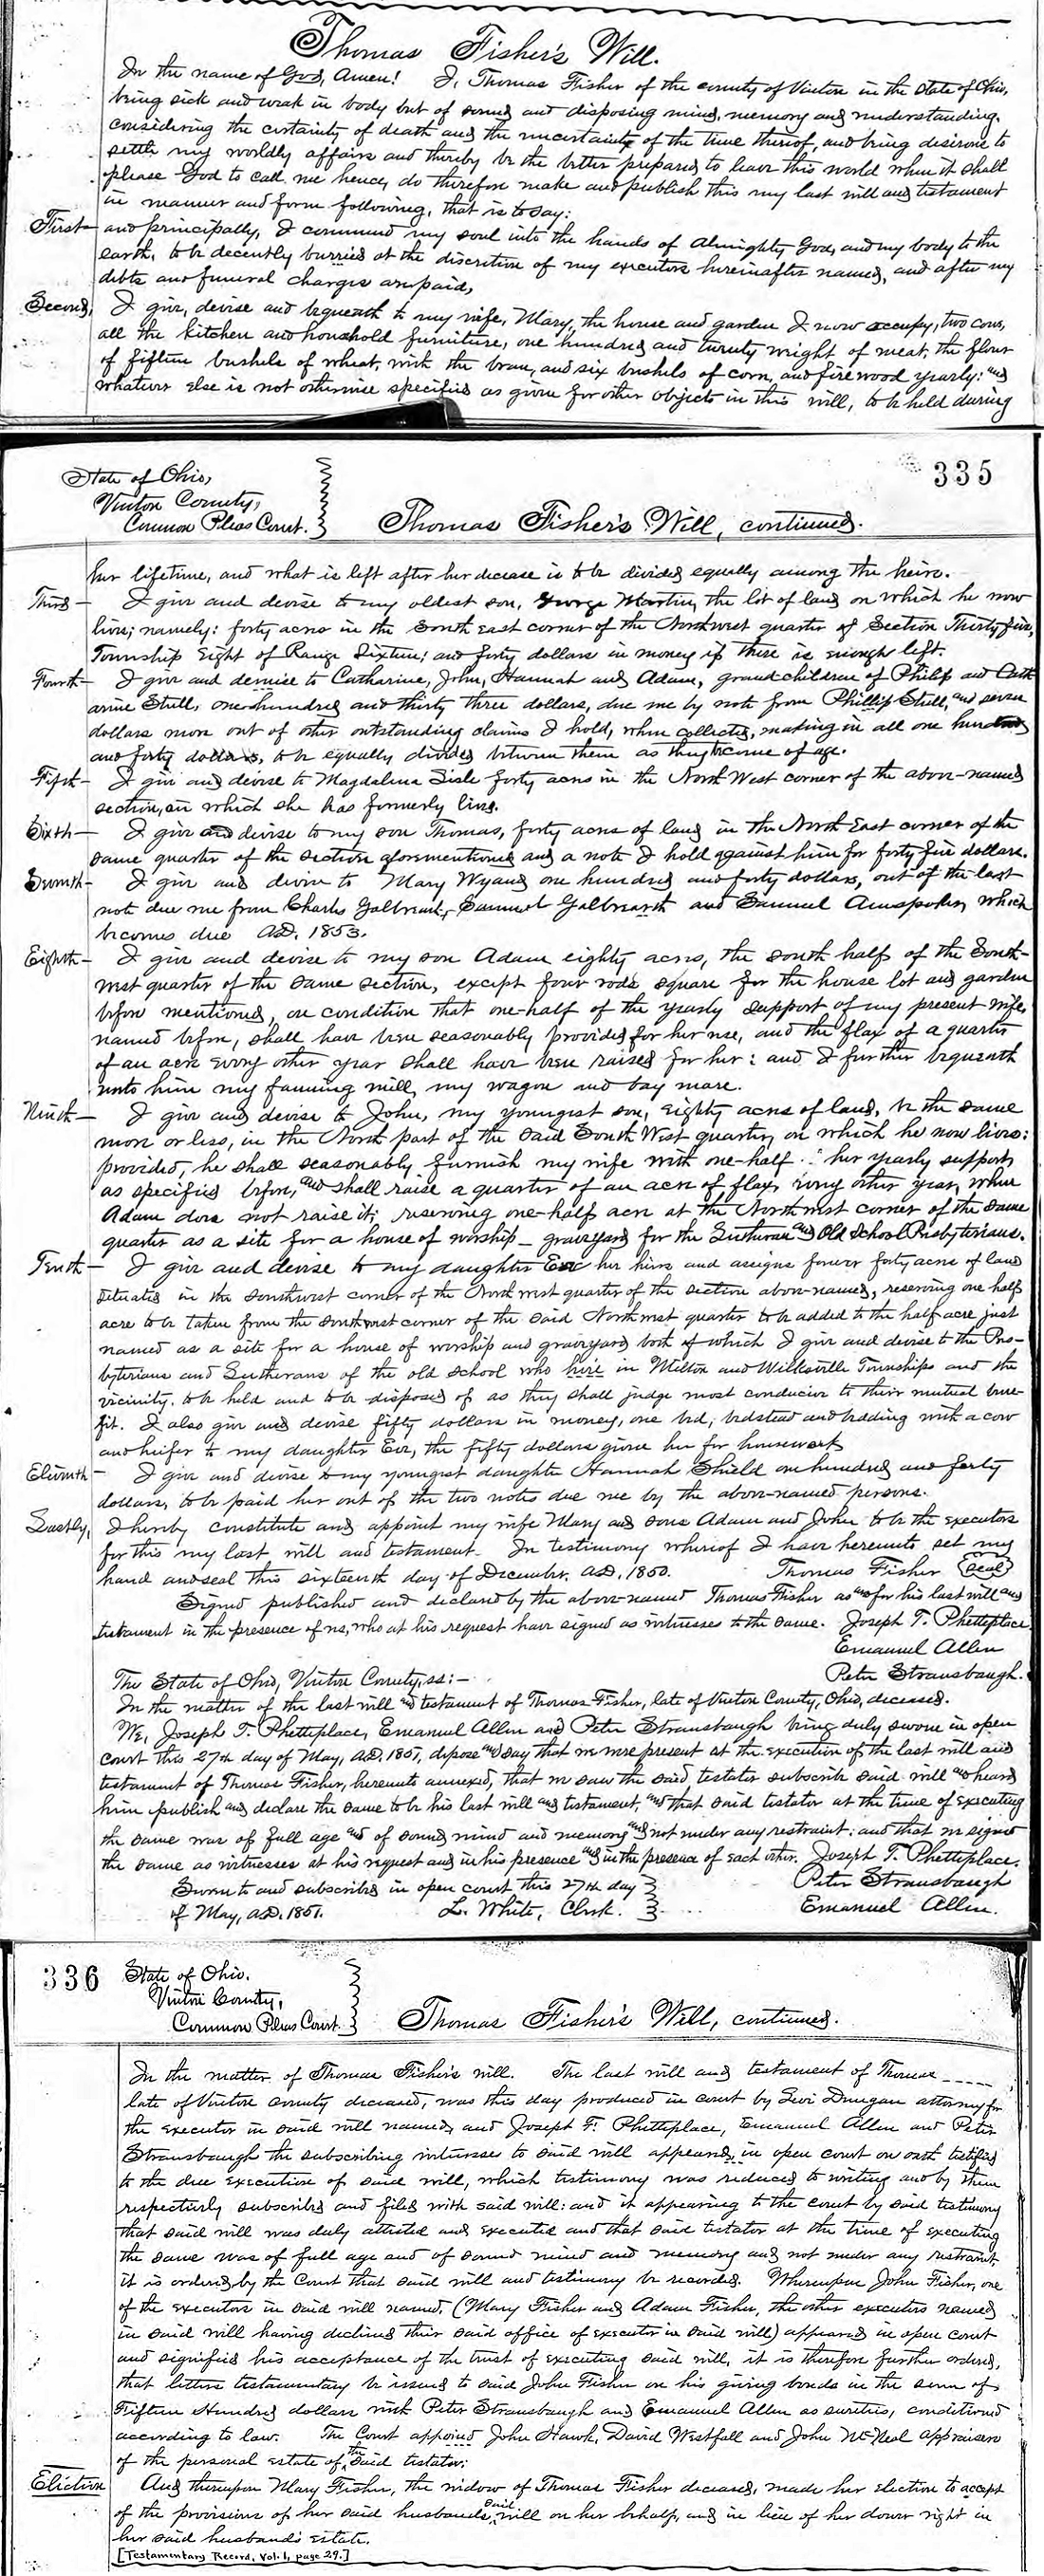 Thomas Fisher's Will.
In the name of God, Amen! I, Thomas Fisher of the county of Vinton in the state of Ohio,
being sick and weak in body but of sound and disposing mind, memory and understanding.
considering the certainty of death and the uncertainty of the time thereof, and being desirous to
settle my worldly affairs and thereby be the better prepared to leave this world when it shall
please God to call me hence, do therefore make and publish this my last will and testament
in manner and form following, that is to say:
First— and principally, I commend my soul into the hands of Almighty God, and my body to the
earth, to be decently burried at the discretion of my executors hereinafter named, and after my
debts and funeral charges are paid,
Second, I give, devise and bequeath to my wife, Mary, the house and garden I now occupy, two cows,
all the kitchen and household furniture, one hundred and twenty weight of meat, the flour
of fifteen bushels of wheat, with the bran, and six bushels of corn, and firewood yearly: and
whatever else is not otherwise specified as given for other objects in this will, to be held during
State of Ohio,
Vinton County,
Common Pleas Court.
335
Thomas Fisher's Will, continued.
her lifetime, and what is left after her decease is to be divided equally among the heirs.
Third— I give and devise to my oldest son, George Martin, the lot of land on which he now
lives; namely: forty acres in the South East corner of the Northwest quarter of Section Thirty five,
Township Eight of Range Sixteen; and forty dollars in money if there is enough left.
Fourth— I give and demise to Catharine, John, Hannah and Adam, grandchildren of Philip and Cath
arine Stull, one hundred and thirty three dollars, due me by note from Phillip Stull, and seven
dollars more out of other outstanding claims I hold, when collected, making in all one hundred
and forty dollars, to be equally divided between them as they become of age.
Fifth— I give and devise to Magdalena Sisle forty acres in the North West corner of the above-named
section, on which she has formerly lived.
Sixth— I give and devise to my son Thomas, forty acres of land in the North East corner of the
same quarter of the section aforementioned and a note I hold against him for forty five dollars.
Seventh— I give and devise to Mary Wyand one hundred and forty dollars, out of the last
note due me from Charles Galbreath, Samuel Galbreath and Samuel Amspoker, which
becomes due A.D. 1853.
Eighth— I give and devise to my son Adam eighty acres, the south half of the South-
west quarter of the same section, except four rods square for the house lot and garden
before mentioned, on condition that one-half of the yearly support of my present wife,
named before, shall have been seasonably provided for her use, and the flax of a quarter
of an acre every other year shall have been raised for her: and I further bequeath
unto him my fanning mill, my wagon and bay mare.
Ninth— I give and devise to John, my youngest son, eighty acres of land, be the same
more or less, in the North part of the said South West quarter, on which he now lives:
provided, he shall seasonably furnish my wife with one-half her yearly support,
as specified before, and shall raise a quarter of an acre of flax, every other year, when
Adam does not raise it; reserving one-half acre at the Northwest corner of the same
quarter as a site for a house of worship — graveyard for the Lutheran and Old School Presbyterians.
Tenth— I give and devise to my daughter Eve her heirs and assigns forever forty acres of land
situated in the southwest corner of the North west quarter of the section above-named, reserving one half
acre to be taken from the southwest corner of the said Northwest quarter to be added to the half acre just
named as a site for a house of worship and graveyard both of which I give and devise to the Pres-
byterians and Lutherans of the old school who live in Milton and Wilksville Townships and the
vicinity, to be held and to be disposed of as they shall judge most conducive to their mutual bene-
fit. I also give and devise fifty dollars in money, one bed, bedstead and bedding with a cow
and heifer to my daughter Eve, the fifty dollars given her for housework
Eleventh— I give and devise to my youngest daughter Hannah Shield one hundred and forty
dollars, to be paid her out of the two notes due me by the above-named persons.
Lastly, I hereby constitute and appoint my wife Mary and sons Adam and John to be the executors
for this my last will and testament. In testimony whereof I have hereunto set my
hand and seal this sixteenth day of December, A.D. 1850. Thomas Fisher (Seal)
Signed published and declared by the above-named Thomas Fisher as and for his last will and
testament in the presence of us, who at his request have signed as witnesses to the same. Joseph T. Phetteplace
Emanuel Allen
Peter Strausbaugh.
The State of Ohio, Vinton County, ss:—
In the matter of the last will and testament of Thomas Fisher, late of Vinton County, Ohio, deceased.
We, Joseph T. Phetteplace, Emanuel Allen and Peter Strausbaugh being duly sworn in open
court this 27th day of May, A.D. 1851, depose and say that we were present at the execution of the last will and
testament of Thomas Fisher, hereunto annexed, that we saw the said testator subscribe said will and heard
him publish and declare the same to be his last will and testament, and that said testator at the time of executing
the same was of full age and of sound mind and memory and not under any restraint: and that we signed
the same as witnesses at his request and in his presence and in the presence of each other. Joseph T. Phetteplace.
Sworn to and subscribed in open court this 27th day Peter Strausbaugh
of May, A.D. 1851. L. White, Clerk. Emanuel Allen.
336
State of Ohio.
Vinton County,
Common Pleas Court.
Thomas Fisher's Will, continued.
In the matter of Thomas Fisher's will. The last will and testament of Thomas -----
late of Vinton County deceased, was this day produced in court by Levi Dungan attorney for
the executor in said will named, and Joseph F. Phetteplace, Emanuel Allen and Peter
Strausbaugh the subscribing witnesses to said will appeared, in open court on oath testified
to the due execution of said will, which testimony was reduced to writing and by them
respectively subscribed and filed with said will: and it appearing to the court by said testimony
that said will was duly attested and executed and that said testator at the time of executing
the same was of full age and of sound mind and memory and not under any restraint
it is ordered by the Court that said will and testimony be recorded. Whereupon John Fisher, one
of the executors in said will named, (Mary Fisher and Adam Fisher, the other executors named
in said will having declined their said office of executor in said will) appeared in open court
and signified his acceptance of the trust of executing said will, it is therefore further ordered,
that letters testamentary be issued to said John Fisher on his giving bonds in the sum of
Fifteen Hundred dollars with Peter Strausbaugh and Emanuel Allen as sureties, conditioned
according to law. The Court appoind John Hawk, David Westfall and John McNeal appraisers
of the personal estate of the said testator:
Election And thereupon Mary Fisher, the widow of Thomas Fisher deceased, made her election to accept
of the provisions of her said husband's said will on her behalf, and in lieu of her dower right in
her said husband's estate.
[Testamentary Record, Vol. 1, page 29.]